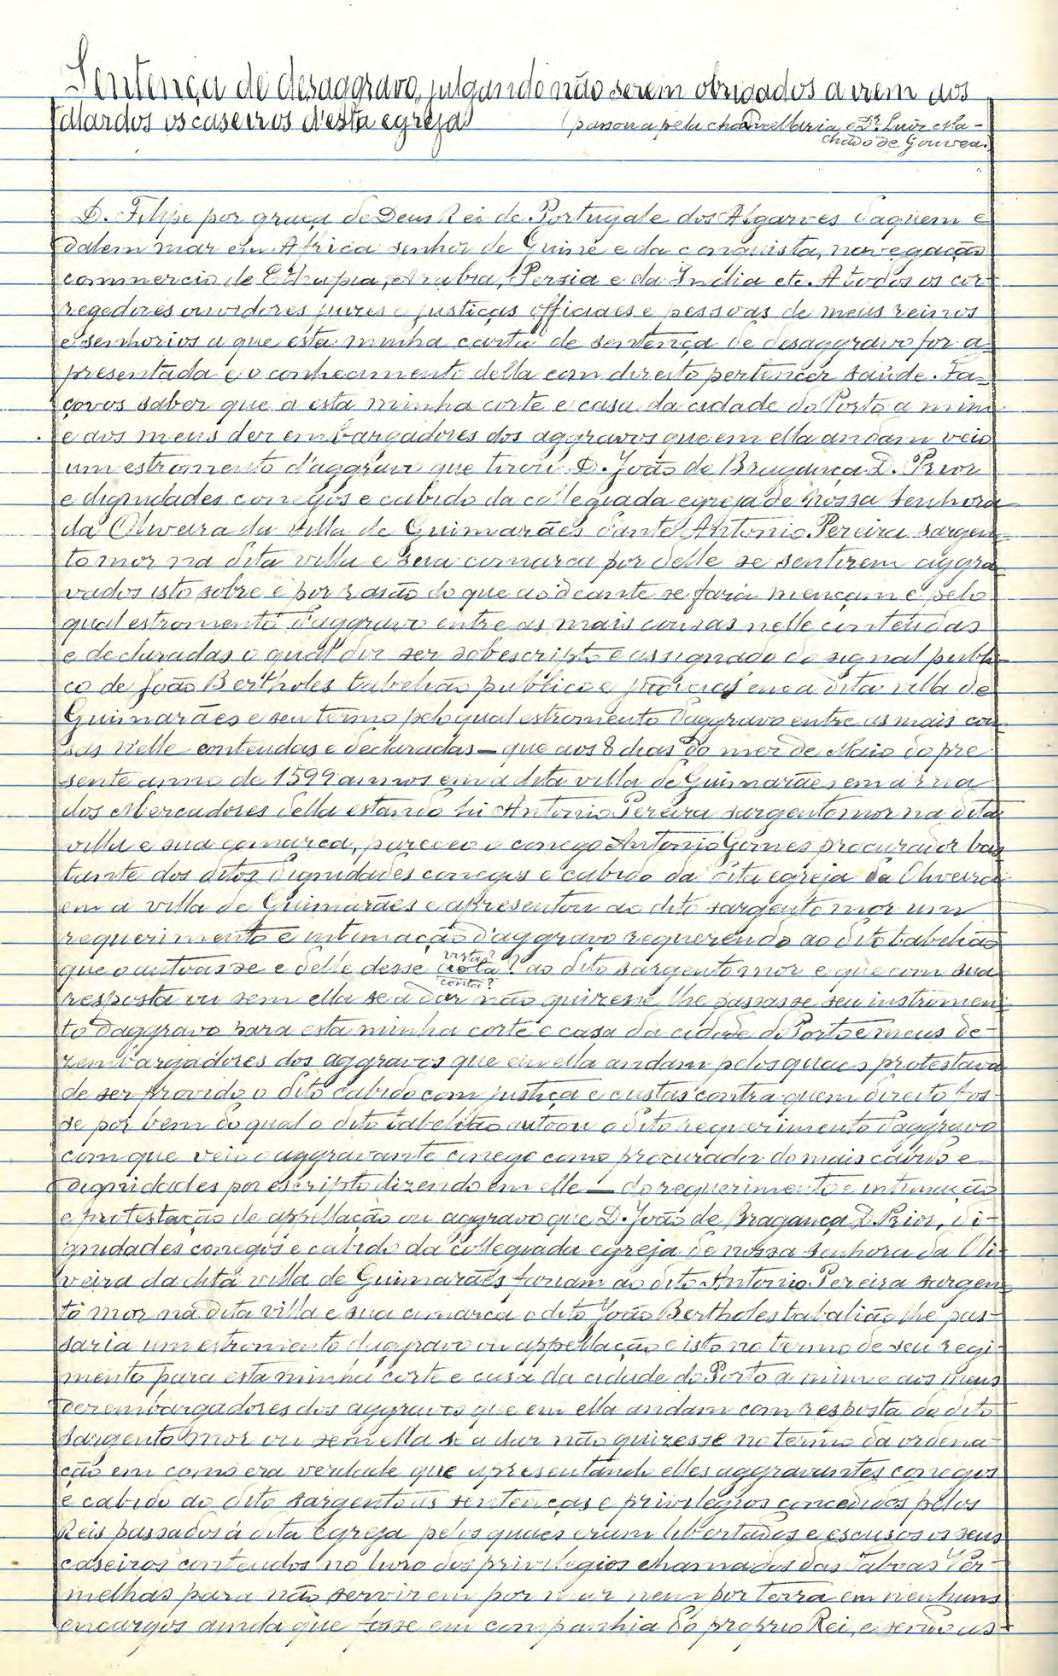 Sentença de desaggravo, julgando não serem obrigados a irem aos
alardos os caseiros d'esta egreja
(passou a pela chancellaria, o Dr. Luiz Ma-
chado de Gouvea.)
D. Filipe por graça de Deus Rei de Portugal e dos Algarves daquem e
dalem mar em Africa senhor de Guiné e da conquista, navegação
commercio de Ethiopia, Arabia, Persia e da India etc. A todos os cor-
regedores ouvidores juizes e justiças officiaes e pessoas de meus reinos
e senhorios a que esta minha carta de sentença de desaggravo for a-
presentada e o conhecimento della com direito pertencer saude. Fa-
çovos saber que a esta minha corte e casa da cidade do Porto a mim
e aos meus dezembargadores dos aggravos que em ella andam veio
um estromento d'aggravo que tirou D. João de Bragança D. Prior
e dignidades conegos e cabido da collegiada egreja de Nossa Senhora
da Oliveira da villa de Guimarães dante Antonio Pereira sargen-
to mor na dita villa e sua comarca por delle se sentirem aggra-
vados isto sobre e por rasão do que ao deante se fara mençam e pelo
qual estromento d'aggravo entre as mais cousas nelle contendas
e declaradas o qual diz ser sobescripto e assignado do signal publi-
co de João Bertholes tabelião publico e judicial em a dita villa de
Guimarães e seu termo pelo qual estromento d'aggravo entre as mais cou-
sas n'elle contendas e declaradas — que aos 8 dias do mez de Maio do pre-
sente anno de 1599 annos em a dita villa de Guimarães, em a rua
dos Mercadores della estando hi Antonio Pereira sargento mor na dita
villa e sua comarca, pareceo o conego Antonio Gomes procurador bas-
tante dos ditos dignidades conegos e cabido da dita egreja da Oliveira
em a villa de Guimarães e apresentou ao dito sargento mor um
requerimento e intimação d'aggravo requerendo ao dito tabelião
que o autoasse e delle desse vista? ao dito sargento mor e que com sua
conta?
resposta ou sem ella se a dar não quizesse lhe passasse seu instromen-
to d'aggravo para esta minha corte e casa da cidade do Porto e meus de-
zembargadores dos aggravos que em ella andam pelos quaes protestava
de ser provido o dito cabido com justiça e custas contra quem direito fos-
se por bem do qual o dito tabelião autoou o dito requerimento d'aggravo
com que veio o aggravante conego como procurador do mais cabido e
dignidades por escripto dizendo em elle — do requerimento e intimação
e protestação de appellação ou aggravo que D. João de Bragança D. Prior, di-
gnidades conegos e cabido da collegiada egreja de nossa Senhora da Oli-
veira da dita villa de Guimarães faziam ao dito Antonio Pereira sargen-
to mor na dita villa e sua comarca o dito João Bertholes tabalião lhe pas-
saria um estromento d'aggravo ou appellação e isto no termo de seu regi-
mento para esta minha corte e casa da cidade do Porto a mim e aos meus
dezembargadores dos aggravos que em ella andam com resposta do dito
sargento mor ou sem ella se a dar não quizesse no termo da ordena-
ção em como era verdade que apresentando elles aggravantes conegos
e cabido ao dito sargento as sentenças e privilegios concedidos pelos
Reis passados á dita egreja pelos quaes eram libertados e escusos os seus
caseiros contendos no livro dos privilegios chamados das Taboas Ver-
melhas para não servirem por mar nem por terra em nenhuns
encargos ainda que fosse em companhia do proprio Rei, e sendo as-